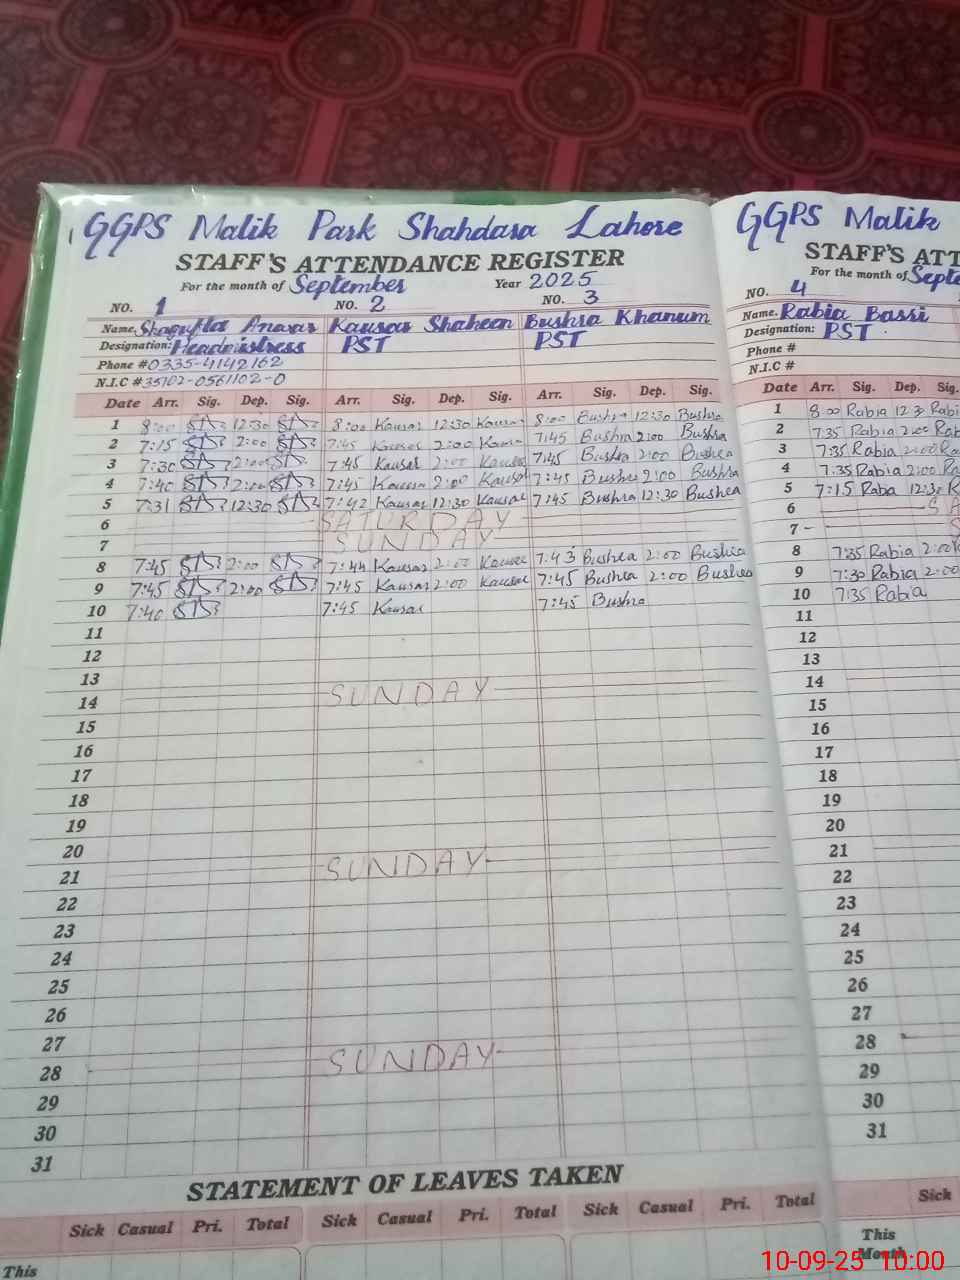 GGPS Malik Park Shahdara Lahore
STAFF'S ATTENDANCE REGISTER
For the month of September Year 2025
NO. 1 NO. 2 NO. 3
Name. Shagufta Anwar Kausar Shaheen Bushra Khanum
Designation: Headmistress PST PST
Phone # 0335-4142162
N.I.C # 35102-0561102-0
Date Arr. Sig. Dep. Sig. Arr. Sig. Dep. Sig. Arr. Sig. Dep. Sig.
1 8:00 12:30 8:00 Kausar 12:30 Kausar 8:00 Bushra 12:30 Bushra
2 7:15 2:00 7:45 Kausar 2:00 Kausar 7:45 Bushra 2:00 Bushra
3 7:30 2:00 7:45 Kausar 2:00 Kausar 7:45 Bushra 2:00 Bushra
4 7:40 2:00 7:45 Kausar 2:00 Kausar 7:45 Bushra 2:00 Bushra
5 7:31 12:30 7:42 Kausar 12:30 Kausar 7:45 Bushra 12:30 Bushra
6 SATURDAY
7 SUNDAY
8 7:45 2:00 7:44 Kausar 2:00 Kausar 7:43 Bushra 2:00 Bushra
9 7:45 2:00 7:45 Kausar 2:00 Kausar 7:45 Bushra 2:00 Bushra
10 7:40 7:45 Kausar 7:45 Bushra
11
12
13
14 SUNDAY
15
16
17
18
19
20
21 SUNDAY
22
23
24
25
26
27
28 SUNDAY
29
30
31
STATEMENT OF LEAVES TAKEN
Sick Casual Pri. Total Sick Casual Pri. Total Sick Casual Pri. Total
This
GGPS Malik
STAFF'S ATT
For the month of Septe
NO. 4
Name. Rabia Basri
Designation: PST
Phone #
N.I.C #
Date Arr. Sig. Dep. Sig.
1 8:00 Rabia 12:3 Rabi
2 7:35 Rabia 2:00 Rab
3 7:35 Rabia 2:00 Ra
4 7:35 Rabia 2:00 Ra
5 7:15 Rabia 12:30 R
6 SA
7 S
8 7:35 Rabia 2:00
9 7:30 Rabia 2:00
10 7:35 Rabia
11
12
13
14
15
16
17
18
19
20
21
22
23
24
25
26
27
28
29
30
31
Sick
This
Month
10-09-25 10:00